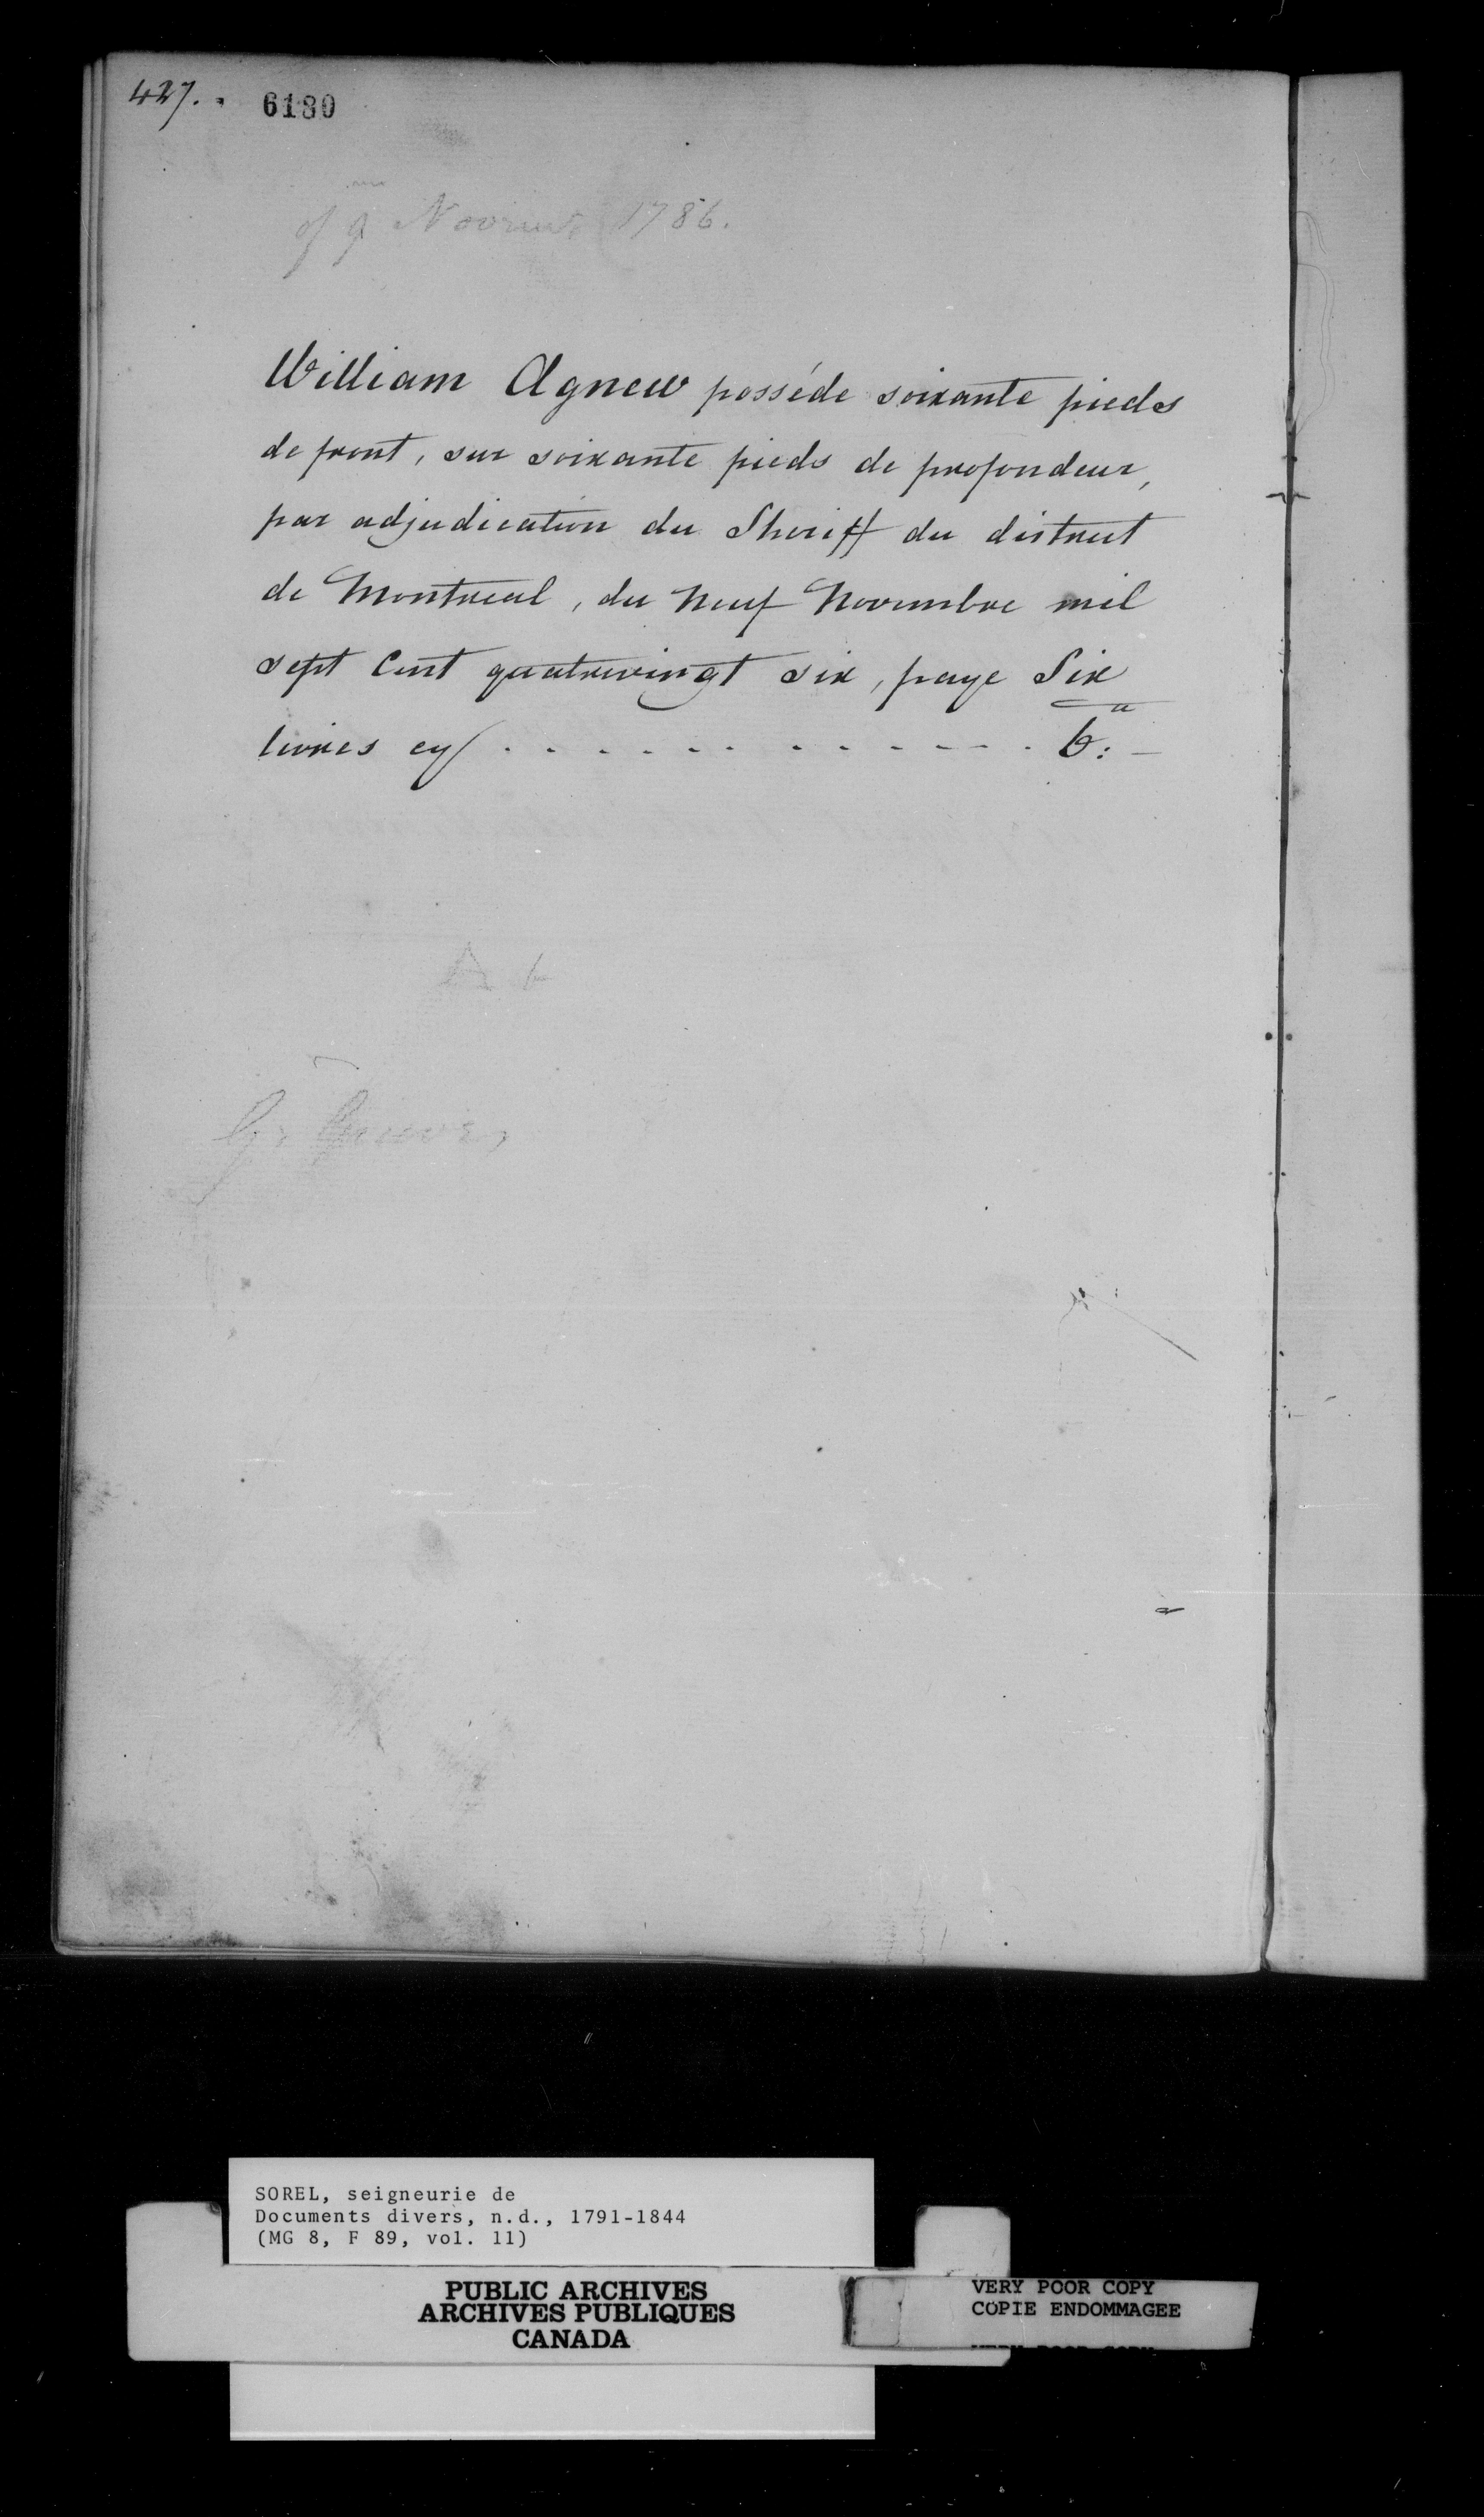 427. 6180
of 9 1786.
William Agnew posséde soixante pieds
de front, sur soixante pieds de profondeur,
par adjudication du Sheriff du district
de Montreal, du Neuf Novembre mil
sept Cent quatrevingt six, paye Six
livres cy . . . . . . . . . . . . . 6: -
SOREL, seigneurie de
Documents divers, n.d., 1791-1844
(MG 8, F 89, vol. 11)
PUBLIC ARCHIVES
ARCHIVES PUBLIQUES
CANADA
VERY POOR COPY
COPIE ENDOMMAGEE
VERY POOR COPY